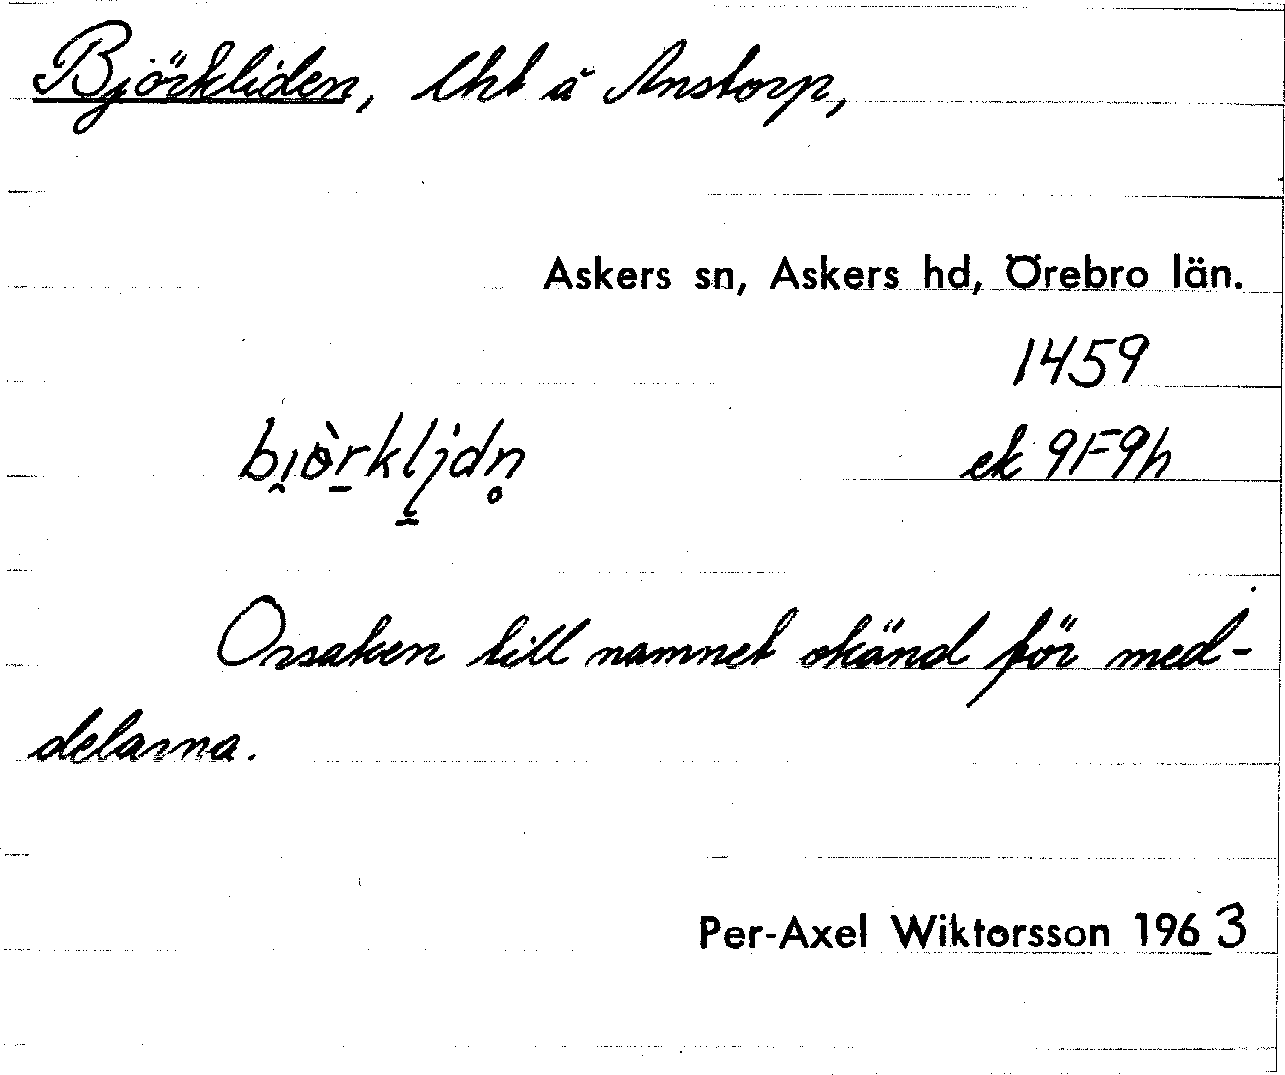 Björkliden, lht å Anstorp,
Askers sn, Askers hd, Örebro län.
1459
ek 9F9h
Orsaken till namnet okänd för med-
delarna.
Per-Axel Wiktorsson 1963